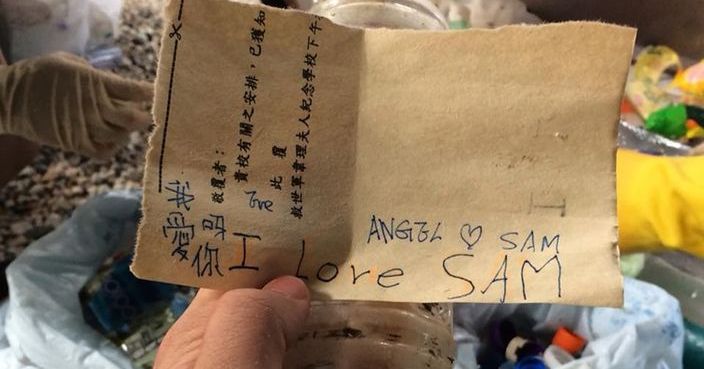 敬覆者：
貴校有關之安排，已獲知
此覆
救世軍韋理夫人紀念學校下午
愛
你
ANGEL ♡ SAM
I Love SAM